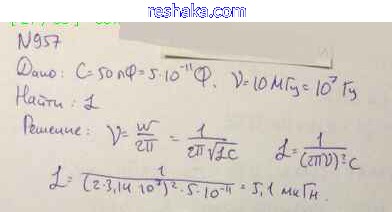 reshaka.com
N957
Дано: C=50пФ=5·10⁻¹¹Ф. ν=10МГц=10⁷Гц
Найти: L
Решение: ν = w/2π = 1/(2π√LC) L = 1/((2πν)²C
L = 1/((2·3,14·10⁷)²·5·10⁻¹¹) = 5,1 мкГн.